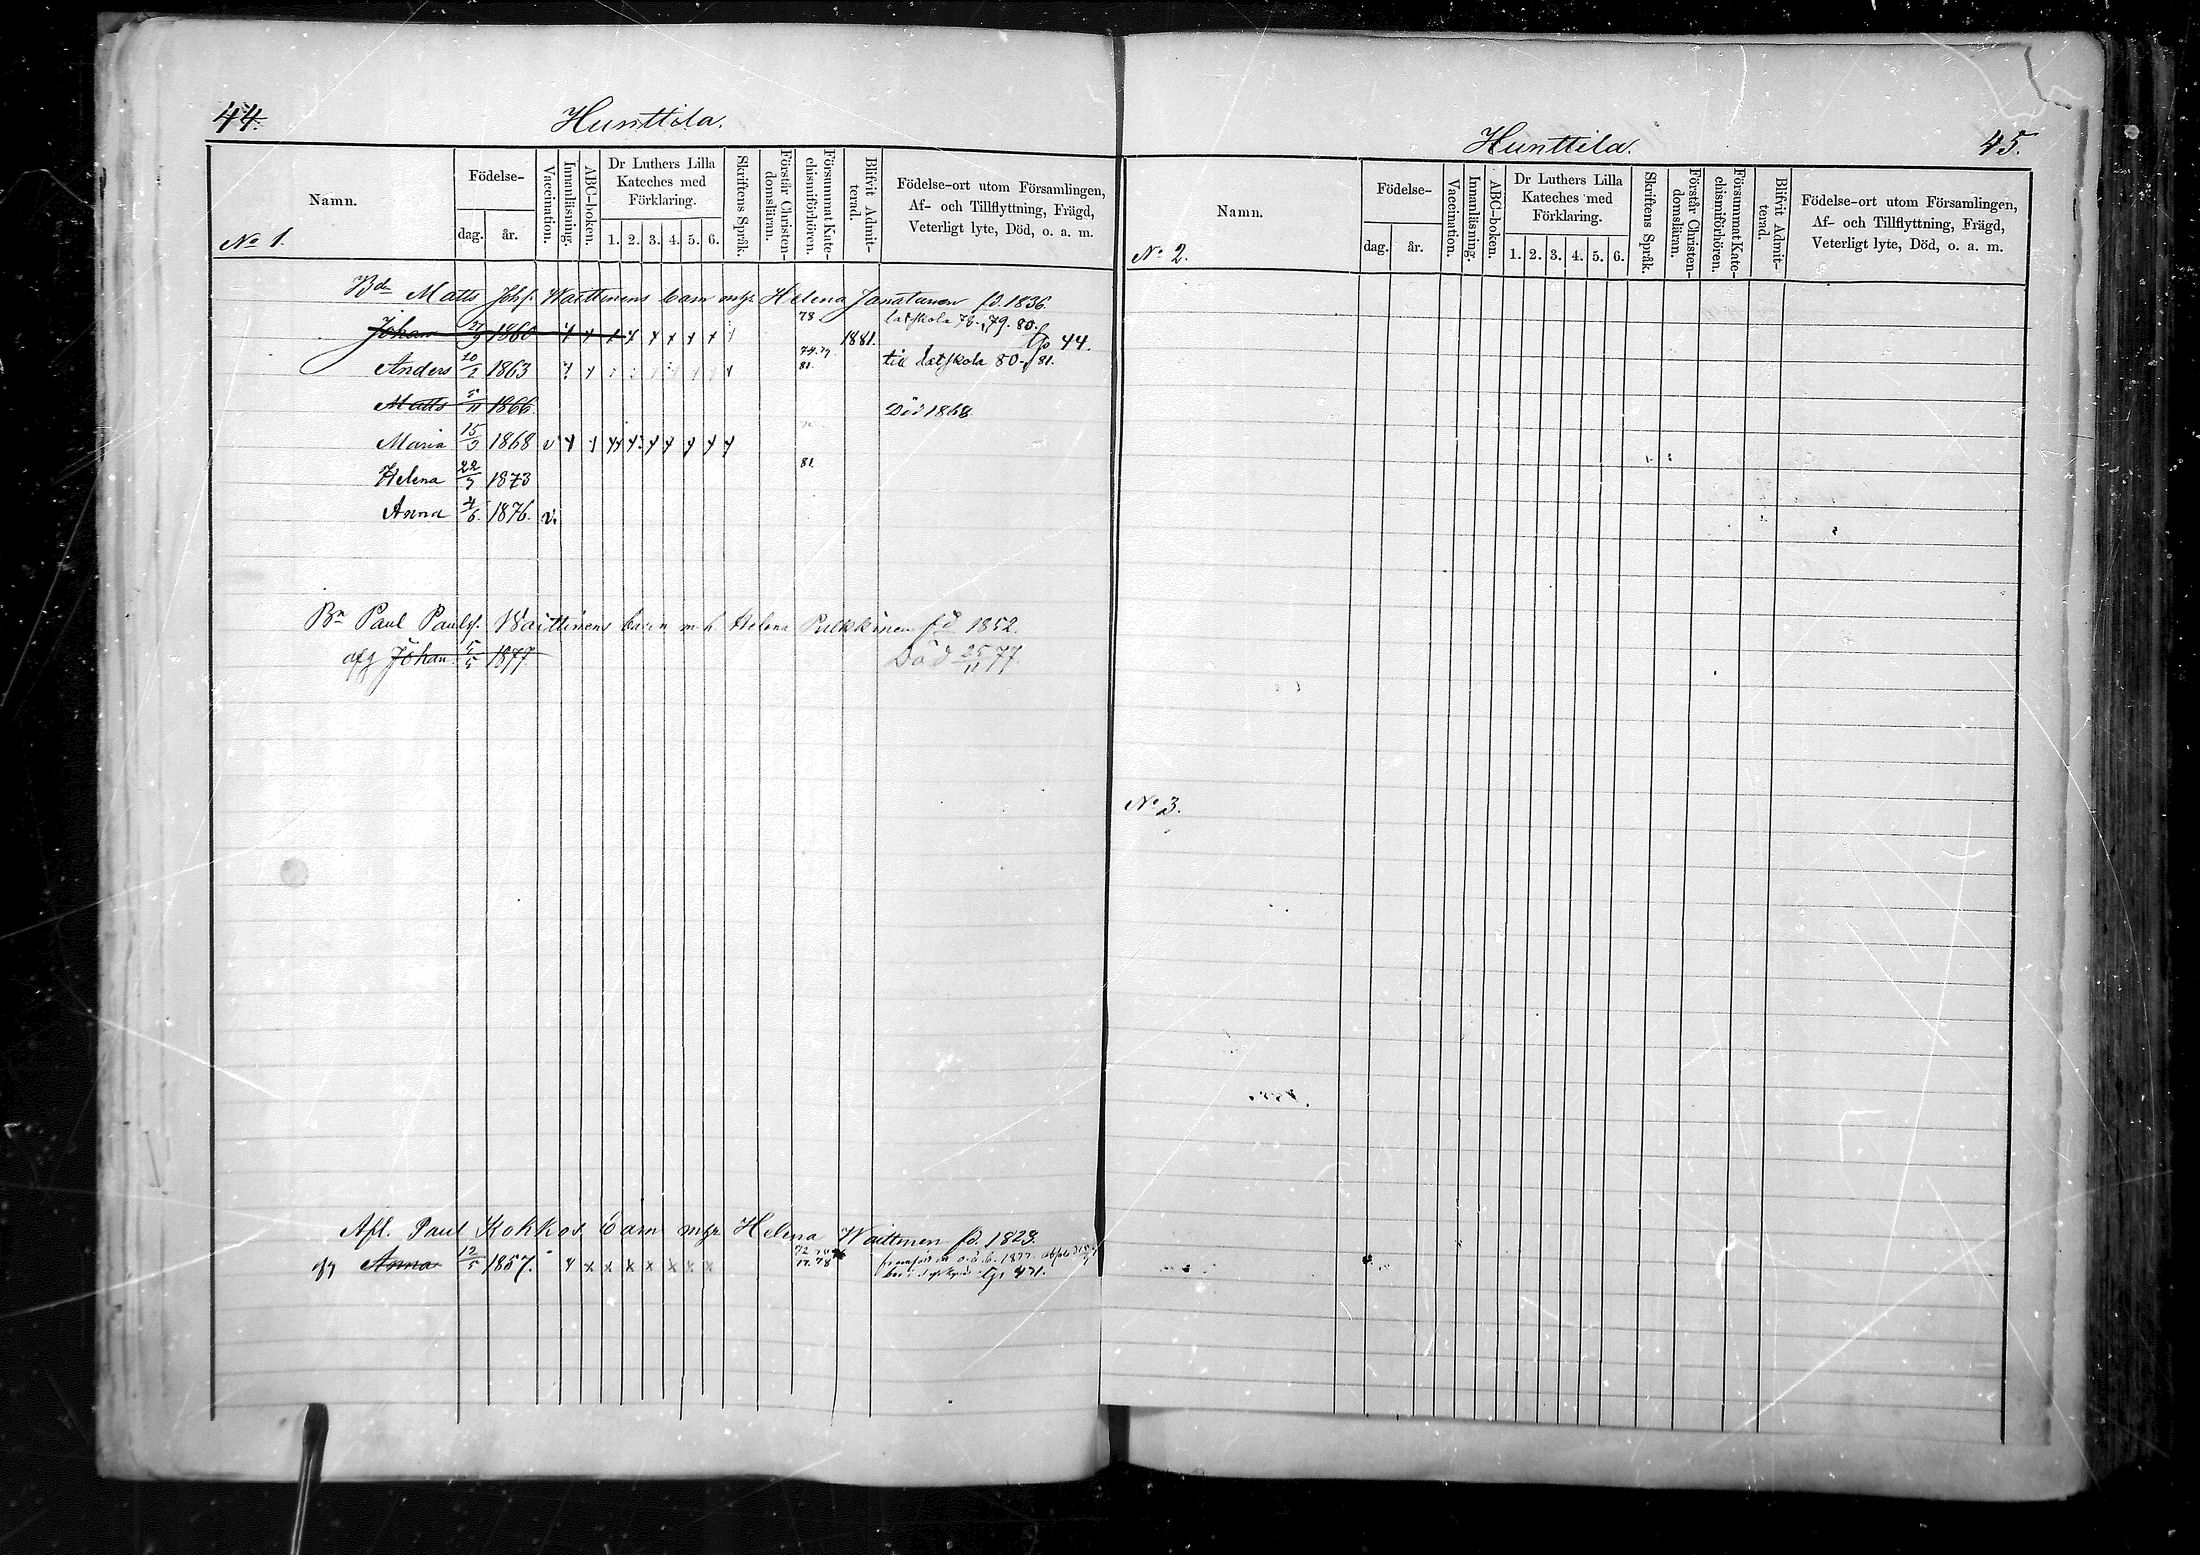 44.
Hunttila.
Namn.
Födelse-
dag.
år.
Vaccination.
Innanläsning.
ABC-boken.
Dr Luthers Lilla
Kateches med
Förklaring.
1. 2. 3. 4. 5. 6.
Skriftens Språk.
Förstår Christen-
domsläran.
Försummat Kate-
chismiförhören.
Blifvit Admit-
terad.
Födelse-ort utom Församlingen,
Af- och Tillflyttning, Frägd,
Veterligt lyte, Död, o. a. m.
No 1.
Bdn Matts Johs. Waittinens barn m. Helena fd. 1836
Johan 1860 78 1881. 78. 79. 80. 44.
Anders 1863 81. till 80-81.
Matts 5/11 1866. Död 1868.
Maria 15/3 1868 v
Helena 22/5 1873 81
Anna 4/6. 1876. v.
Bn Paul Pauls. Waittinens barn m. h. Helena Pulkkinen fd 1852.
afg Johan 5/5 1877 Död 25/11 77.
Afl. Paul Kohkos barn m. Helena Waittinen fd. 1823.
afg Anna 12/5 1857. 1877. 431.
Hunttila.
45.
Namn.
Födelse-
dag.
år.
Vaccination.
Innanläsning.
ABC-boken.
Dr Luthers Lilla
Kateches med
Förklaring.
1. 2. 3. 4. 5. 6.
Skriftens Språk.
Förstår Christen-
domsläran.
Försummat Kate-
chismiförhören.
Blifvit Admit-
terad.
Födelse-ort utom Församlingen,
Af- och Tillflyttning, Frägd,
Veterligt lyte, Död, o. a. m.
No 2.
No 3.